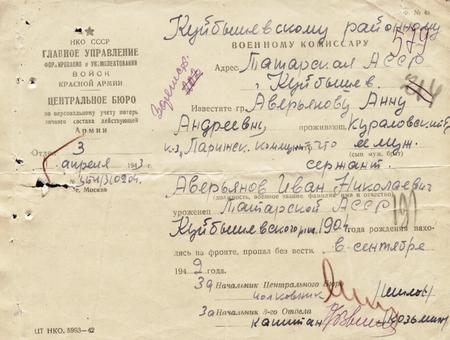 НКО СССР
ГЛАВНОЕ УПРАВЛЕНИЕ
ФОРМИРОВАНИЯ и УКОМПЛЕКТОВАНИЯ
ВОЙСК
КРАСНОЙ АРМИИ
ЦЕНТРАЛЬНОЕ БЮРО
по персональному учету потерь
личного состава действующей
Армии
Отдел 3
апреля 194
г. Москва
Ф. №
Куйбышевскому районному
ВОЕННОМУ КОМИССАРУ
Адрес: Татарская АССР
г. Куйбышев
Известите гр. Аверьянову Анну
Андреевну, проживающ. Кураловский
Парижск. что ее муж
(сын, муж, брат)
сержант
Аверьянов Иван Николаевич
(должность, военное звание, фамилия, имя и отчество)
уроженец Татарской АССР
Куйбышевского р-на 1904 года рождения нахо-
дясь на фронте, пропал без вести в сентябре
1942 года.
За Начальник Центрального Бюро
полковник (Шилов)
За Начальник 3-го Отдела
капитан (Козьмин)
ЦТ НКО. 5993—42